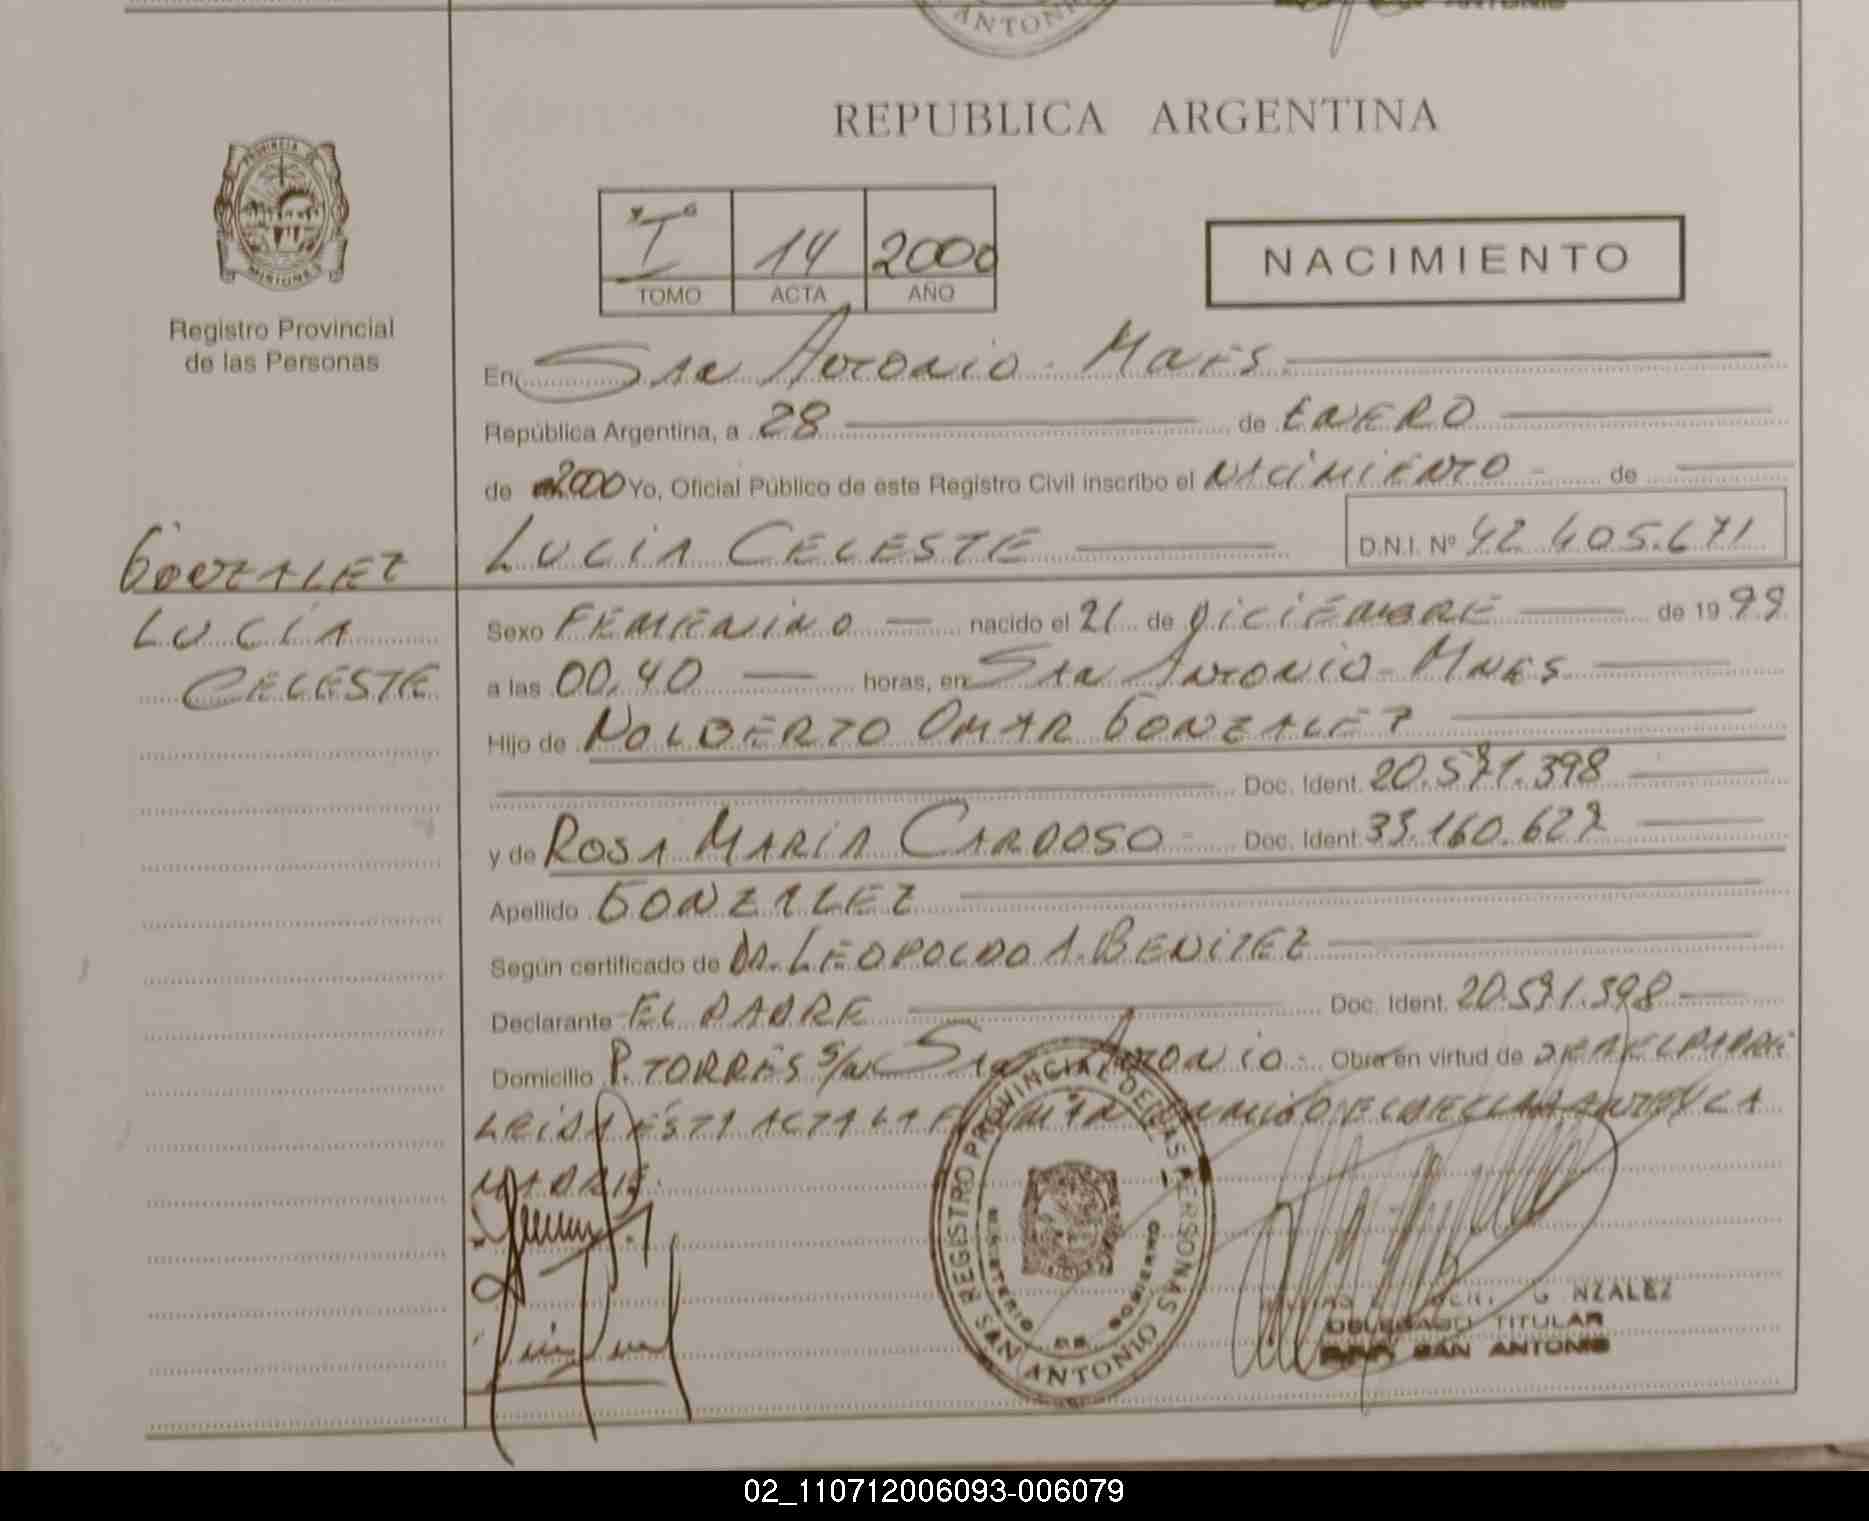 ANTONIO
REPUBLICA ARGENTINA
PROVINCIA DE
MISIONES
Registro Provincial
de las Personas
"I" 14 2000
TOMO ACTA AÑO
NACIMIENTO
En San Antonio - Mnes
República Argentina, a 28 de ENERO
de 2000 Yo, Oficial Público de este Registro Civil inscribo el NACIMIENTO de
LUCIA CELESTE D.N.I. Nº 42.405.671
GONZALEZ
LUCIA
CELESTE
Sexo FEMENINO nacido el 21 de DICIEMBRE de 19 99
a las 00,40 horas, en San Antonio - Mnes
Hijo de NOLBERTO OMAR GONZALEZ
Doc. Ident. 20.571.398
y de ROSA MARIA CARDOSO Doc. Ident. 33.160.627
Apellido GONZALEZ
Según certificado de DR. LEOPOLDO A. BENITEZ
Declarante EL PADRE Doc. Ident. 20.571.398
Domicilio P. TORRES S/N San Antonio. Obra en virtud de SER EL PADRE
LEIDA ESTA ACTA LA FIRMAN CONMIGO EL DECLARANTE Y LA
MADRE.
REGISTRO PROVINCIAL DE LAS PERSONAS
SAN ANTONIO
MINISTERIO DE GOBIERNO
NZALEZ
DELEGADO TITULAR
SAN ANTONIO
02_110712006093-006079